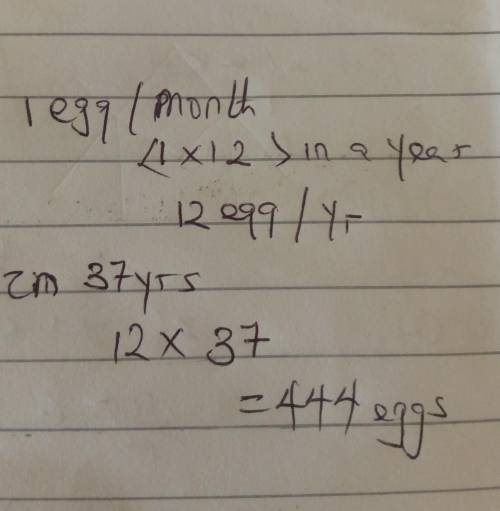 1 egg / month
<1 x 12> in a year
12 egg / yr
In 37yrs
12 x 37
= 444 eggs